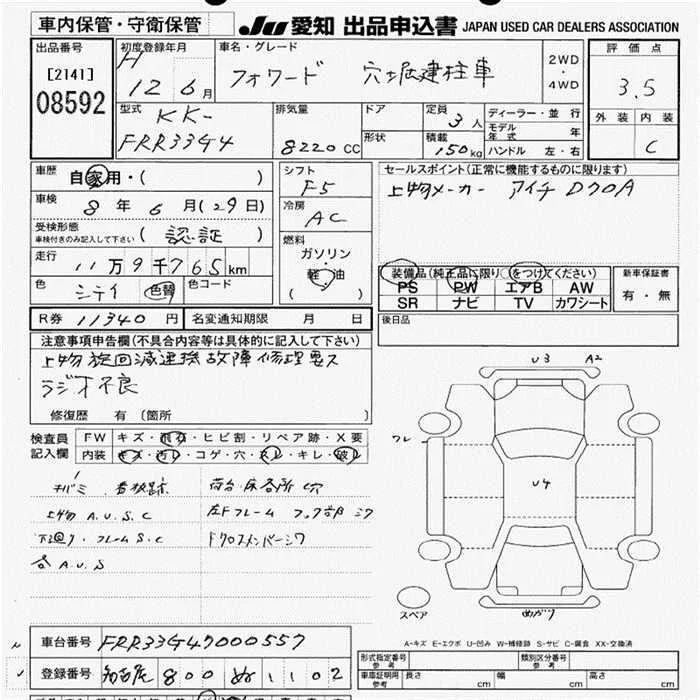 車内保管・守衛保管 JU 愛知 出品申込書 JAPAN USED CAR DEALERS ASSOCIATION
出品番号 [2141] 08592
初度登録年月 H 12 6月
車名・グレード フォワード 穴堀建柱車
2WD・4WD
評価点 3.5
外装 内装 C
型式 KK-FRR33G4
排気量 8220CC
ドア
形状
定員 3人
積載 150kg
ディーラー・並行
モデル年式 年
ハンドル 左・右
車歴 自家用・( )
車検 8年6月(29日)
受検形態 車検付きのみ記入して下さい (認証)
走行 11万9千765km
色 シティ 色替 色コード
シフト F5
冷房 AC
燃料 ガソリン・軽油 ( )
セールスポイント(正常に機能するものに限ります)
上物メーカー アイチ D70A
装備品(純正品に限り○をつけてください)
PS PW エアB AW
SR ナビ TV カワシート
新車保証書 有・無
R券 11340円 名変通知期限 月 日
後日品
注意事項申告欄(不具合内容等は具体的に記入して下さい)
上物旋回減速機故障修理要ス
ラジオ不良
修復歴 有 〔箇所 〕
検査員記入欄
FW キズ・飛石・ヒビ割・リペア跡・X要
内装 キズ・汚れ・コゲ・穴・スレ・キレ・破レ
キバミ 看板跡 荷台床各所穴
上物 A.U.S.C 左Fフレーム フック部シワ
下廻り・フレームS.C
各A.U.S
U3 A2
ワレ
U4
スペア
めがり
A-キズ E-エクボ U-凹み W-補修跡 S-サビ C-腐食 XX-交換済
車台番号 FRR33G47000557
登録番号 名古屋 800 ぬ 1102
形式指定番号 参考
類別区分番号 参考
車庫証明用 参考 長さ cm 幅 cm 高さ cm